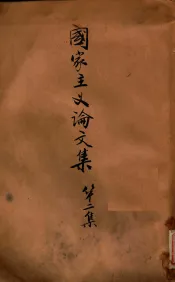 國家主义論文集
第二集